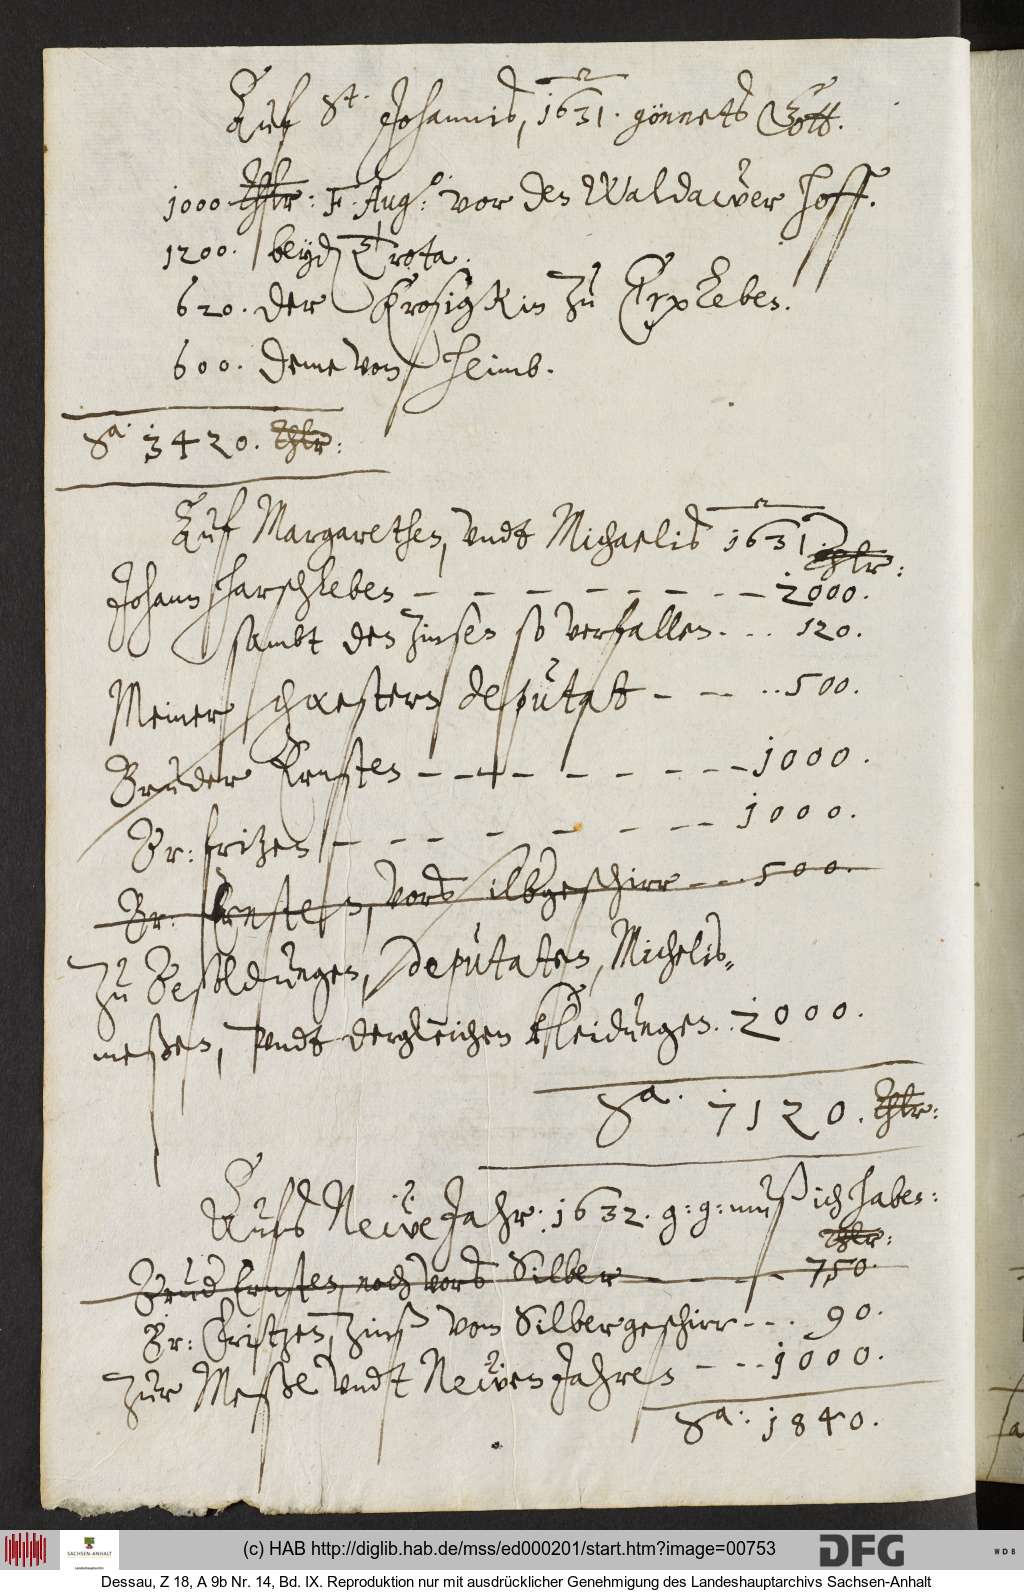 Auf St. Johannis, 1631. gönnets Gott.
1000 Thlr: F. Aug: vor den Waldawer Hoff.
1200. beyd Trota.
620. der Krosigkin zu Erxleben.
600. deme von Heimb.
Sa. 3420. Thlr:
Auf Margarethen, vndt Michaelis 1631.
Thlr:
Johann Harschleben - - - - - - - - 2000.
sambt den Zinsen so verfallen. . . 120.
Meiner schwestern deputat - - . . 500.
Bruder Ernsten - - - - - - - - 1000.
Br: fritzen - - - - - - - - 1000.
Br: Ernsten, vors silbgeschirr - - . 500.
Zu Besoldungen, deputaten, Michelis-
meßen, vndt dergleichen Kleidungen. . 2000.
Sa. 7120. Thlr:
Aufs Neüe Jahr: 1632. g: g: muß ich haben:
Thlr:
Brud Ernsten, noch vors Silber - - - 750.
Br: Fritzen, Zinß vom Silbergeschirr - - . 90.
Zur Meße vndt Neüen Jahren - - . . 1000.
Sa. 1840.
(c) HAB http://diglib.hab.de/mss/ed000201/start.htm?image=00753
SACHSEN-ANHALT
DFG
WDB
Dessau, Z 18, A 9b Nr. 14, Bd. IX. Reproduktion nur mit ausdrücklicher Genehmigung des Landeshauptarchivs Sachsen-Anhalt